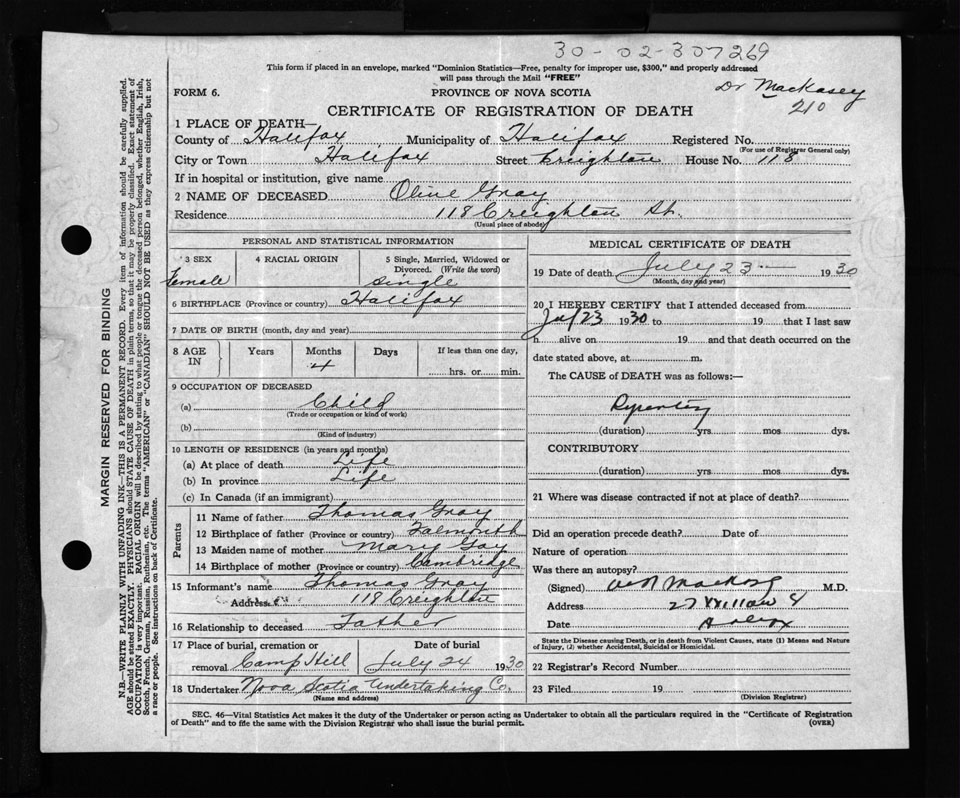 30-02-307269
This form if placed in an envelope, marked "Dominion Statistics—Free, penalty for improper use, $300," and properly addressed
will pass through the Mail "FREE"
Dr Mackasey
210
FORM 6. PROVINCE OF NOVA SCOTIA
CERTIFICATE OF REGISTRATION OF DEATH
1 PLACE OF DEATH—
County of Halifax Municipality of Halifax Registered No.
(For use of Registrar General only)
City or Town Halifax Street Creighton House No. 118
If in hospital or institution, give name
2 NAME OF DECEASED Olive Gray
Residence 118 Creighton St.
(Usual place of abode)
PERSONAL AND STATISTICAL INFORMATION
3 SEX Female
4 RACIAL ORIGIN
5 Single, Married, Widowed or
Divorced. (Write the word)
single
6 BIRTHPLACE (Province or country) Halifax
7 DATE OF BIRTH (month, day and year)
8 AGE IN Years Months 4 Days If less than one day,
hrs. or min.
9 OCCUPATION OF DECEASED
(a) Child
(Trade or occupation or kind of work)
(b)
(Kind of industry)
10 LENGTH OF RESIDENCE (in years and months)
(a) At place of death Life
(b) In province Life
(c) In Canada (if an immigrant)
Parents
11 Name of father Thomas Gray
12 Birthplace of father (Province or country) Falmouth
13 Maiden name of mother Mary Gay
14 Birthplace of mother (Province or country) Cambridge
15 Informant's name Thomas Gray
Address 118 Creighton
16 Relationship to deceased Father
17 Place of burial, cremation or Date of burial
removal Camp Hill July 24 1930
18 Undertaker Nova Scotia Undertaking Co.
(Name and address)
MEDICAL CERTIFICATE OF DEATH
19 Date of death July 23 — 1930
(Month, day and year)
20 I HEREBY CERTIFY that I attended deceased from
23 1930 to 19 that I last saw
h alive on 19 and that death occurred on the
date stated above, at m.
The CAUSE of DEATH was as follows:—
Dysentery
(duration) yrs mos dys.
CONTRIBUTORY
(duration) yrs. mos. dys.
21 Where was disease contracted if not at place of death?
Did an operation precede death? Date of
Nature of operation
Was there an autopsy?
(Signed) M.D.
Address 27 Willow St
Date Halifax
State the Disease causing Death, or in death from Violent Causes, state (1) Means and Nature
of Injury, (2) whether Accidental, Suicidal or Homicidal.
22 Registrar's Record Number
23 Filed 19
(Division Registrar)
SEC. 46—Vital Statistics Act makes it the duty of the Undertaker or person acting as Undertaker to obtain all the particulars required in the "Certificate of Registration
of Death" and to file the same with the Division Registrar who shall issue the burial permit. (OVER)
MARGIN RESERVED FOR BINDING
N.B.—WRITE PLAINLY WITH UNFADING INK—THIS IS A PERMANENT RECORD. Every item of information should be carefully supplied.
AGE should be stated EXACTLY. PHYSICIANS should STATE CAUSE OF DEATH in plain terms, so that it may be properly classified. Exact statement of
OCCUPATION is very important. RACIAL ORIGIN will be described by stating to what people or tongue the deceased person belonged, whether English, Irish,
Scotch, French, German, Russian, Ruthenian, etc. The terms "AMERICAN" or "CANADIAN" SHOULD NOT BE USED as they express citizenship but not
a race or people. See instructions on back of Certificate.